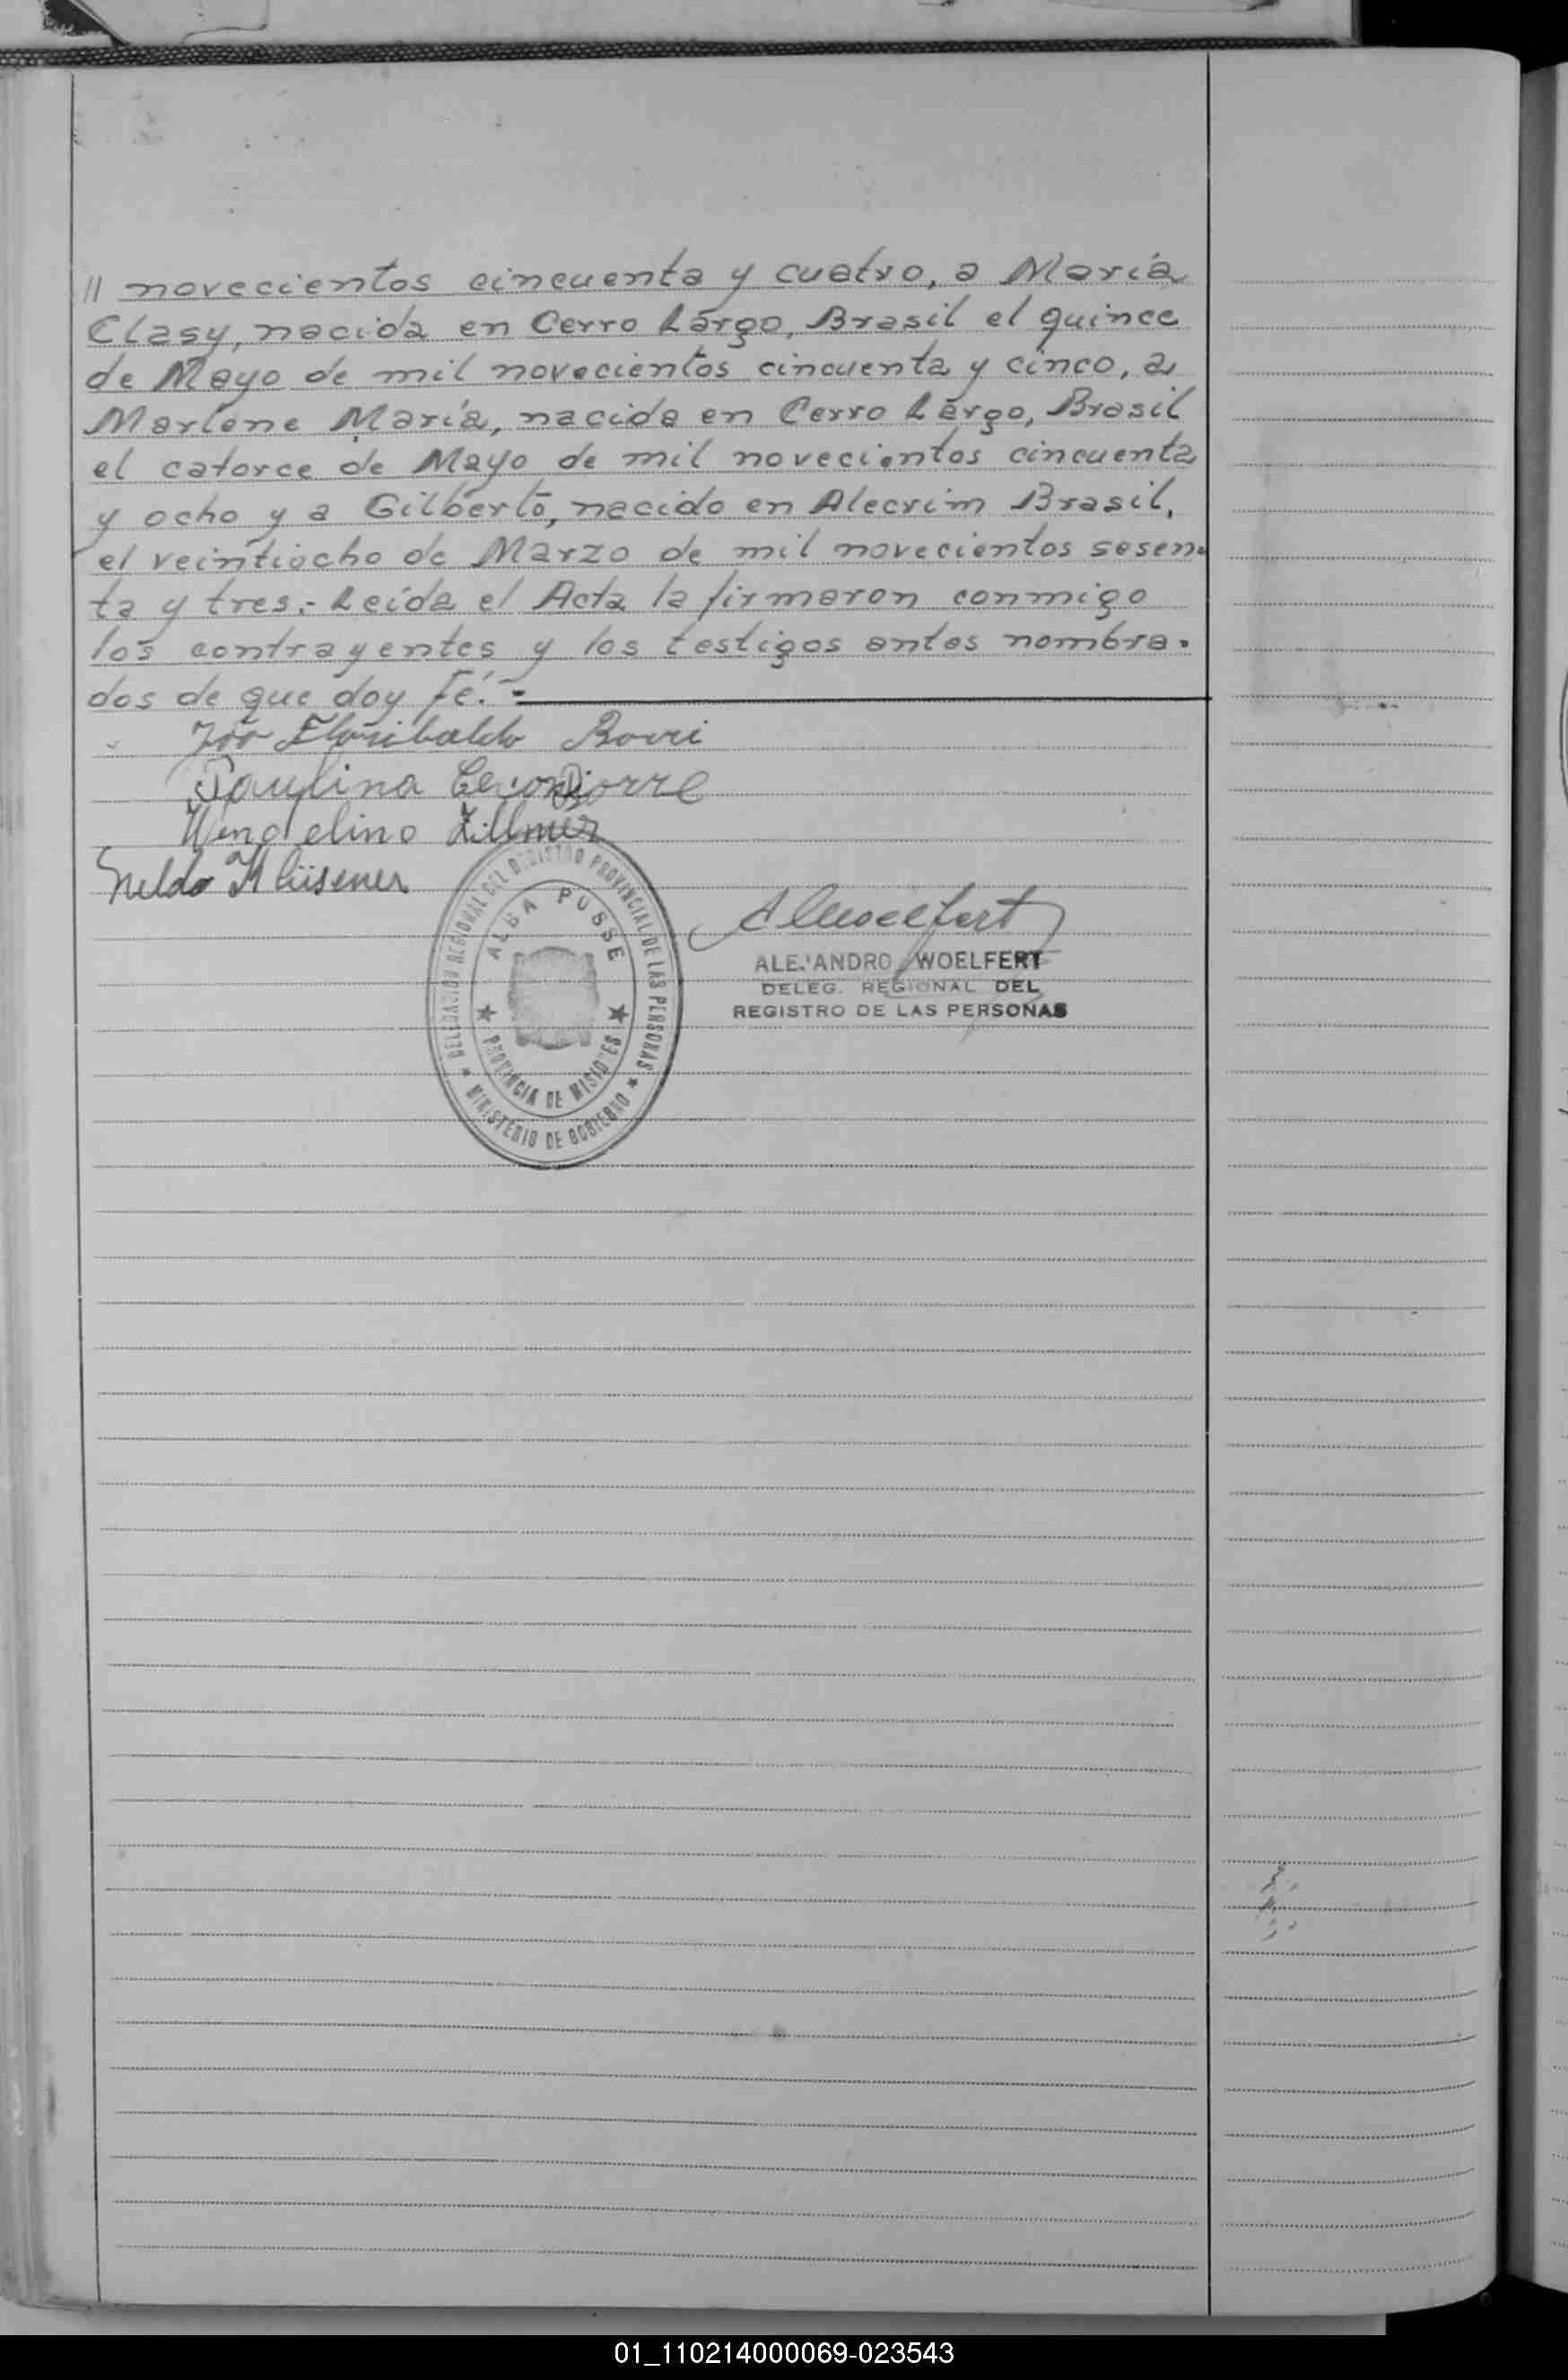 // novecientos cincuenta y cuatro, a María
Clasy, nacida en Cerro Largo, Brasil el quince
de Mayo de mil novecientos cincuenta y cinco, a
Marlene María, nacida en Cerro Largo, Brasil
el catorce de Mayo de mil novecientos cincuenta
y ocho y a Gilberto, nacido en Alecrim Brasil,
el veintiocho de Marzo de mil novecientos sesen-
ta y tres.- Leída el Acta la firmaron conmigo
los contrayentes y los testigos antes nombra-
dos de que doy Fé.-
Floribaldo
Paulina
Wendelino Zillmer
Klüsener
DELEGACION REGIONAL DEL REGISTRO PROVINCIAL DE LAS PERSONAS
ALBA POSSE
PROVINCIA DE MISIONES
MINISTERIO DE GOBIERNO
AWoelfert
ALEJANDRO WOELFERT
DELEG. REGIONAL DEL
REGISTRO DE LAS PERSONAS
01_110214000069-023543